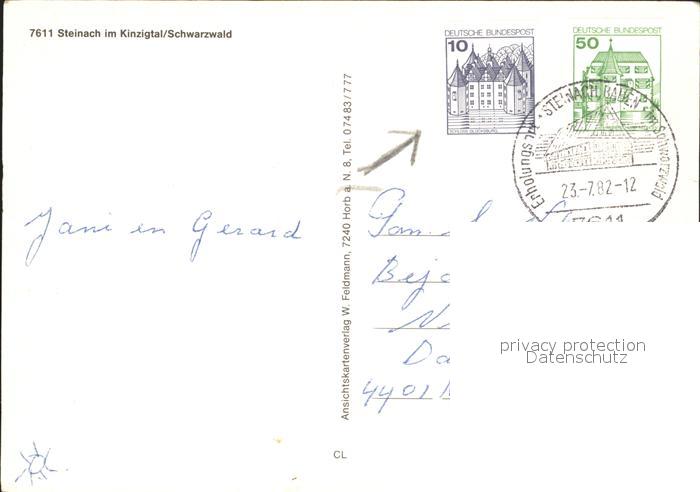 7611 Steinach im Kinzigtal/Schwarzwald
Jani en Gerard
CL
Ansichtskartenverlag W. Feldmann, 7240 Horb a. N. 8, Tel. 0 74 83 / 7 77
DEUTSCHE BUNDESPOST
10
SCHLOSS GLÜCKSBURG
DEUTSCHE BUNDESPOST
50
STEINACH, BADEN
Schwarzwald
Erholungsort
23.-7.82-12
7611
Fam.
Bejo
N
Da
4401
privacy protection
Datenschutz